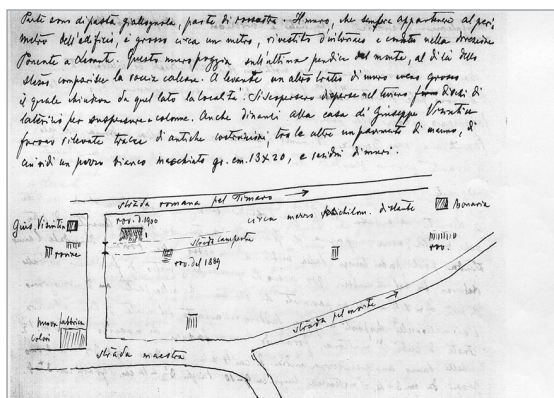 Parte sono di pasta giallognola, parte di rossastra. Il muro, che sempre appartiene al peri
metro dell'edificio, è grosso circa un metro, rivestito d'intonaco e corre nella direzione
Ponente a Levante. Questo muro poggia sull'ultima pendice del monte, al di là dello
stesso comparisce la roccia calcare. A levante un altro tratto di muro meno grosso
il quale chiudeva da quel lato la località. Si scopersero disperse nel terreno dischi di
laterizio per suspensure e colonne. Anche dinanzi alla casa di Giuseppe Visintin
furono rilevate tracce di antiche costruzioni, tra le altre un pavimento di marmo, di
cui vidi un pezzo bianco macchiato gr. cm. 13x20, e residui di muri.
strada romana pel Timavo →
Gius. Visintin
rov. d. 1900
circa mezzo chilom. distante
Bonavia
strada campestre
rovine
rov. del 1889
rov.
nuova fabbrica
colori
strada pel monte →
strada maestra